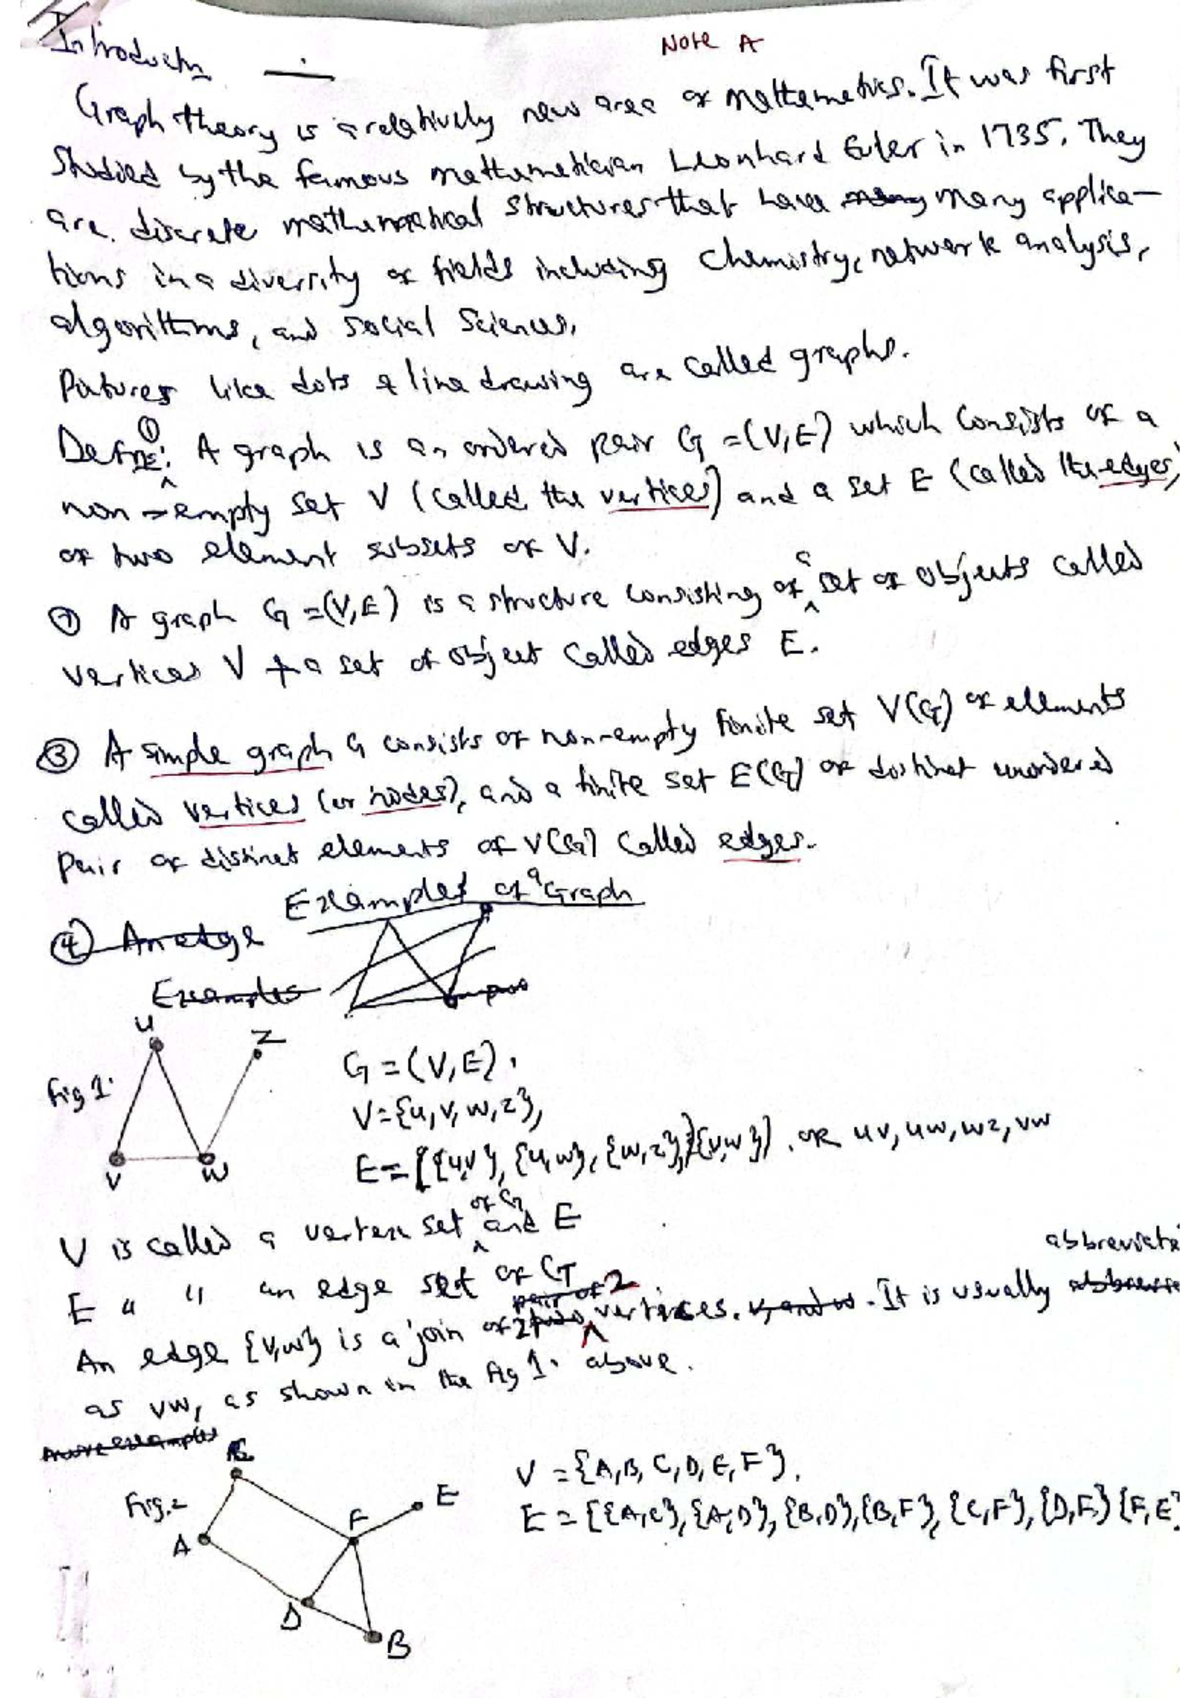 Introductn
Note A
Graph theory is a relatively new area of mathematics. It was first
studied by the famous mathematician Leonhard Euler in 1735. They
are discrete mathematical structures that have many many applica-
tions in a diversity of fields including chemistry, network analysis,
algorithms, and social sciences.
Pictures like dots & line drawing are called graphs.
Defn: ① A graph is an ordered pair G = (V,E) which consists of a
non-empty set V (called the vertices) and a set E (called the edges)
of two element subsets of V.
② A graph G = (V,E) is a structure consisting of a set of objects called
vertices V & a set of object called edges E.
③ A simple graph G consists of non-empty finite set V(G) of elements
called vertices (or nodes), and a finite set E(G) of distinct unordered
pair of distinct elements of V(G) called edges.
Examples of a Graph
④ An edge
Examples
u
z
Fig 1.
v
w
G = (V,E).
V = {u,v,w,z},
E = {{u,v}, {u,w}, {w,z}, {v,w}}. OR uv, uw, wz, vw
V is called a vertex set of G and E
E " " an edge set of G
An edge {v,w} is a join of 2 vertices. v and w. It is usually abbreviate
as vw, as shown in the fig 1. above.
more examples
C
Fig.2
A
F
E
D
B
V = {A,B,C,D,E,F}.
E = {{A,C}, {A,D}, {B,D}, {B,F}, {C,F}, {D,F} {F,E}